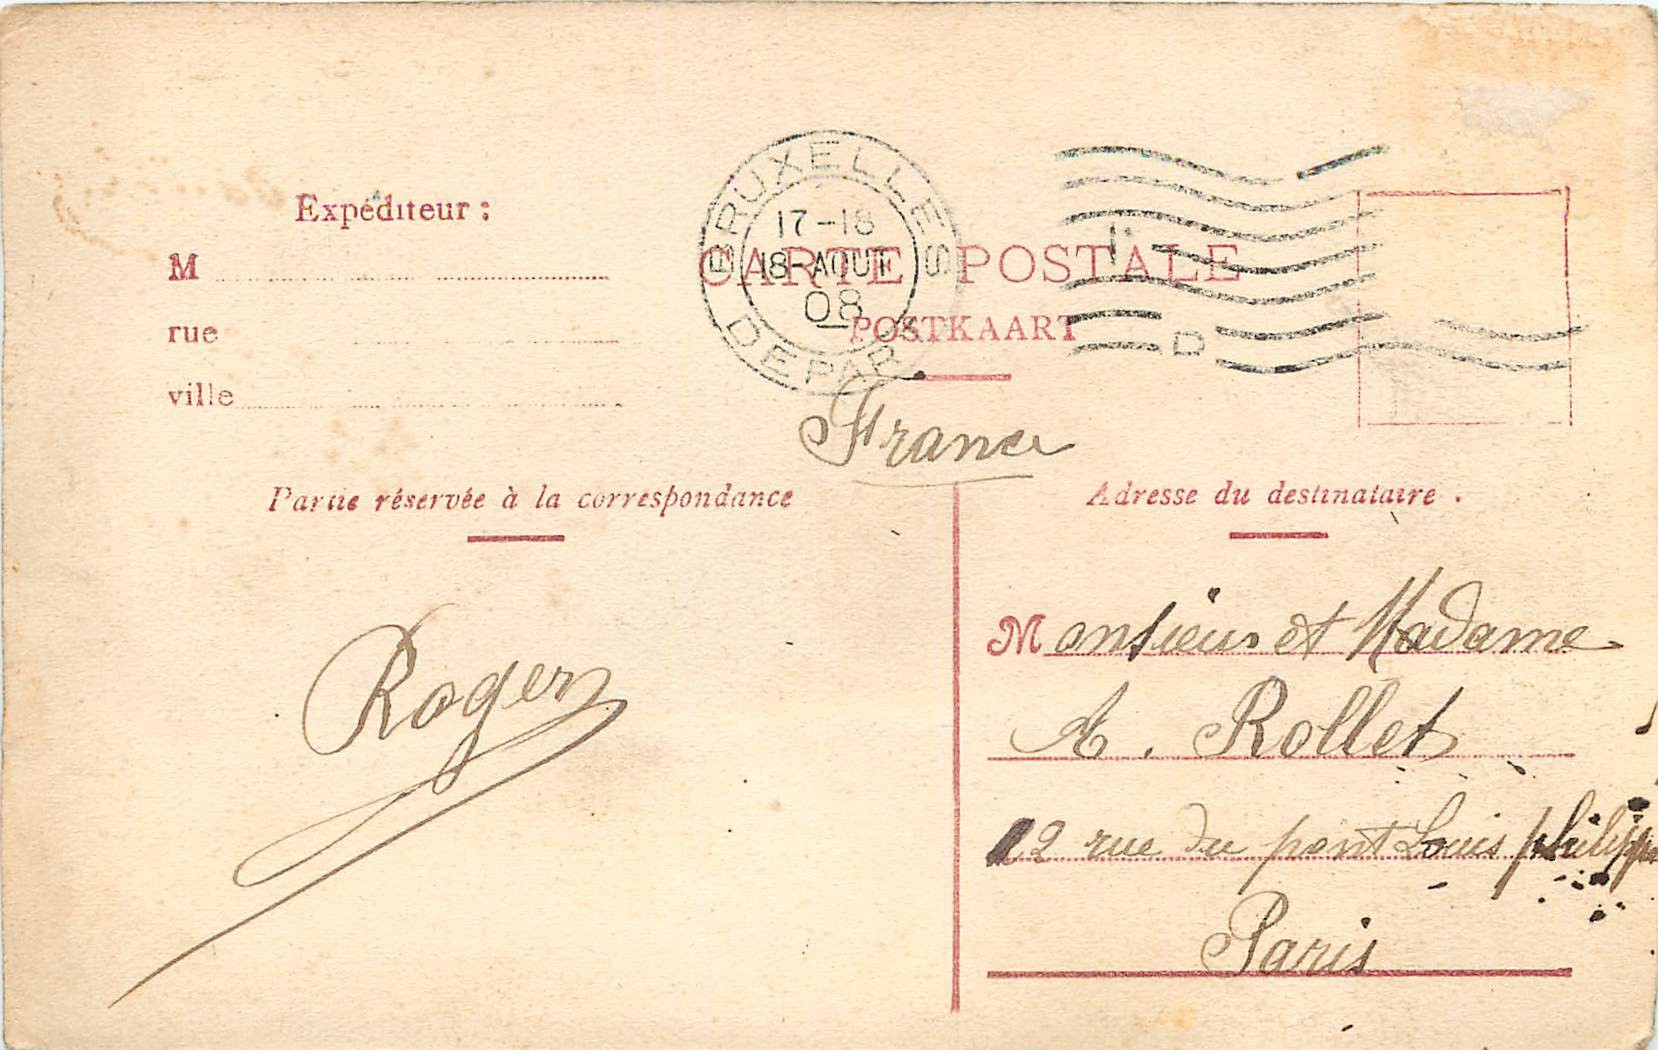 Expéditeur :
M
rue
ville
BRUXELLES
17-18
18-AOUT
08
DEPART
CARTE POSTALE
POSTKAART
D
France
Partie réservée à la correspondance
Adresse du destinataire .
Roger
Monsieur et Madame
A. Rollet
12 rue du pont Louis philippe
Paris